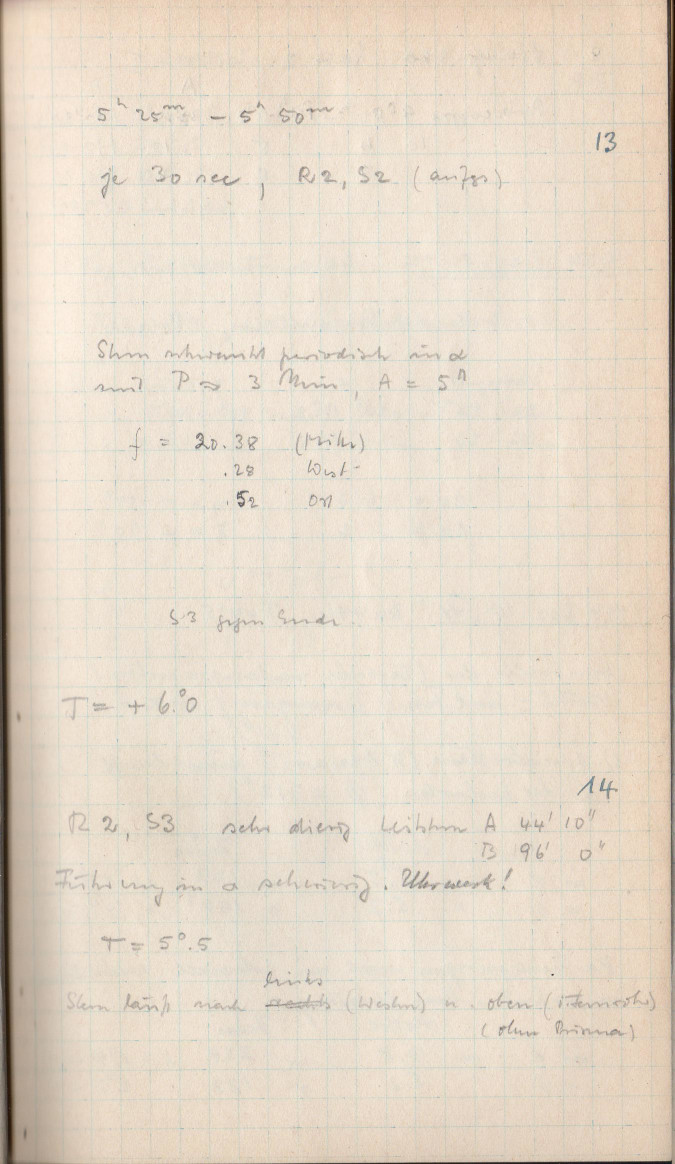 5ʰ 25ᵐ – 5ʰ 50ᵐ
13
je 30 sec, R2, S2 (aufgs)
Stern schwankt periodisch in α
mit P ≈ 3 Min, A = 5"
f = 20.38 (Mitte)
.28 West
.52 Ost
S3 gegen Ende
T = + 6.°0
14
R 2, S3 sehr diesig Leitstern A 44' 10"
B 96' 0"
Führung in α schwierig. Uhrwerk!
T = 5°.5
links
Stern läuft nach rechts (Westen) u. oben (im Fernrohr)
(ohne Prisma)